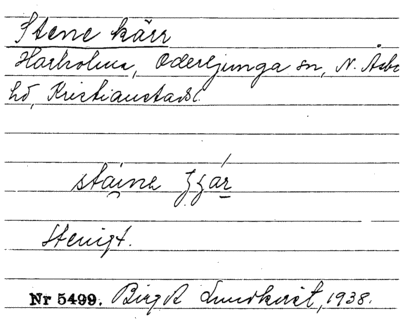 Stene kärr
Harholma, Oderljunga sn, N. Åsbo
hd, Kristianstads l.
stäina
Stenigt.
Nr 5499. Birgit Lundkvist, 1938.